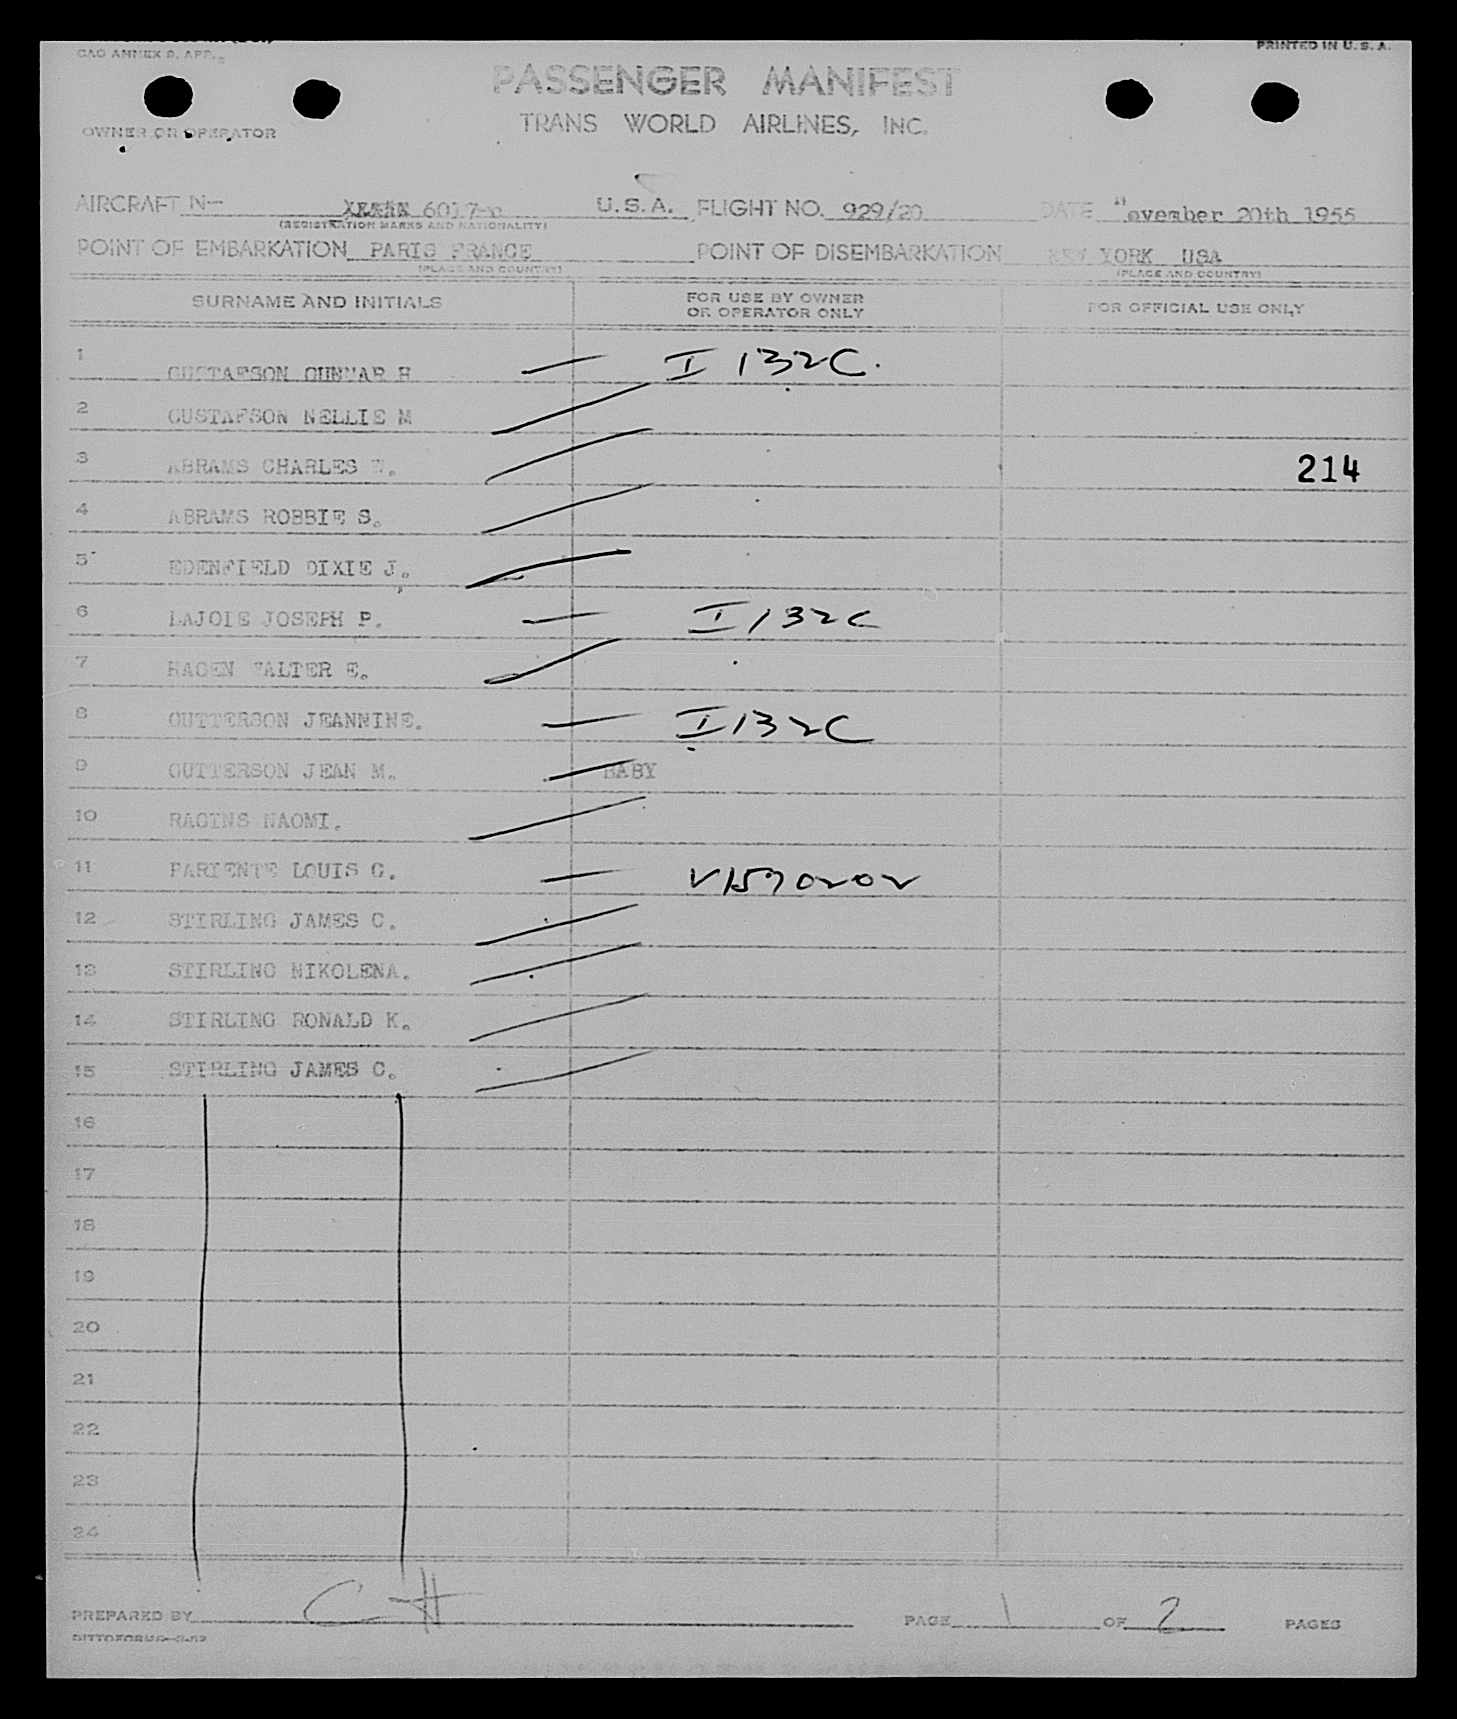 CAO ANNEX 9, APP.
PRINTED IN U. S. A.
PASSENGER MANIFEST
TRANS WORLD AIRLINES, INC.
OWNER OR OPERATOR
AIRCRAFT N— 6017-C U.S.A. FLIGHT NO. 929/20 DATE November 20th 1955
(REGISTRATION MARKS AND NATIONALITY)
POINT OF EMBARKATION PARIS FRANCE POINT OF DISEMBARKATION NEW YORK USA
(PLACE AND COUNTRY) (PLACE AND COUNTRY)
SURNAME AND INITIALS FOR USE BY OWNER OR OPERATOR ONLY FOR OFFICIAL USE ONLY
1 GUSTAFSON GUNNAR H I 132C.
2 GUSTAFSON NELLIE M
3 ABRAMS CHARLES W. 214
4 ABRAMS ROBBIE S.
5 EDENFIELD DIXIE J.
6 LAJOIE JOSEPH P. I 132C
7 HAGEN WALTER E.
8 GUTTERSON JEANNINE. I 132C
9 GUTTERSON JEAN M. BABY
10 RAGINS NAOMI.
11 PARIENTE LOUIS G. V1570202
12 STIRLING JAMES C.
13 STIRLING NIKOLENA.
14 STIRLING RONALD K.
15 STIRLING JAMES C.
16
17
18
19
20
21
22
23
24
PREPARED BY CH PAGE 1 OF 2 PAGES